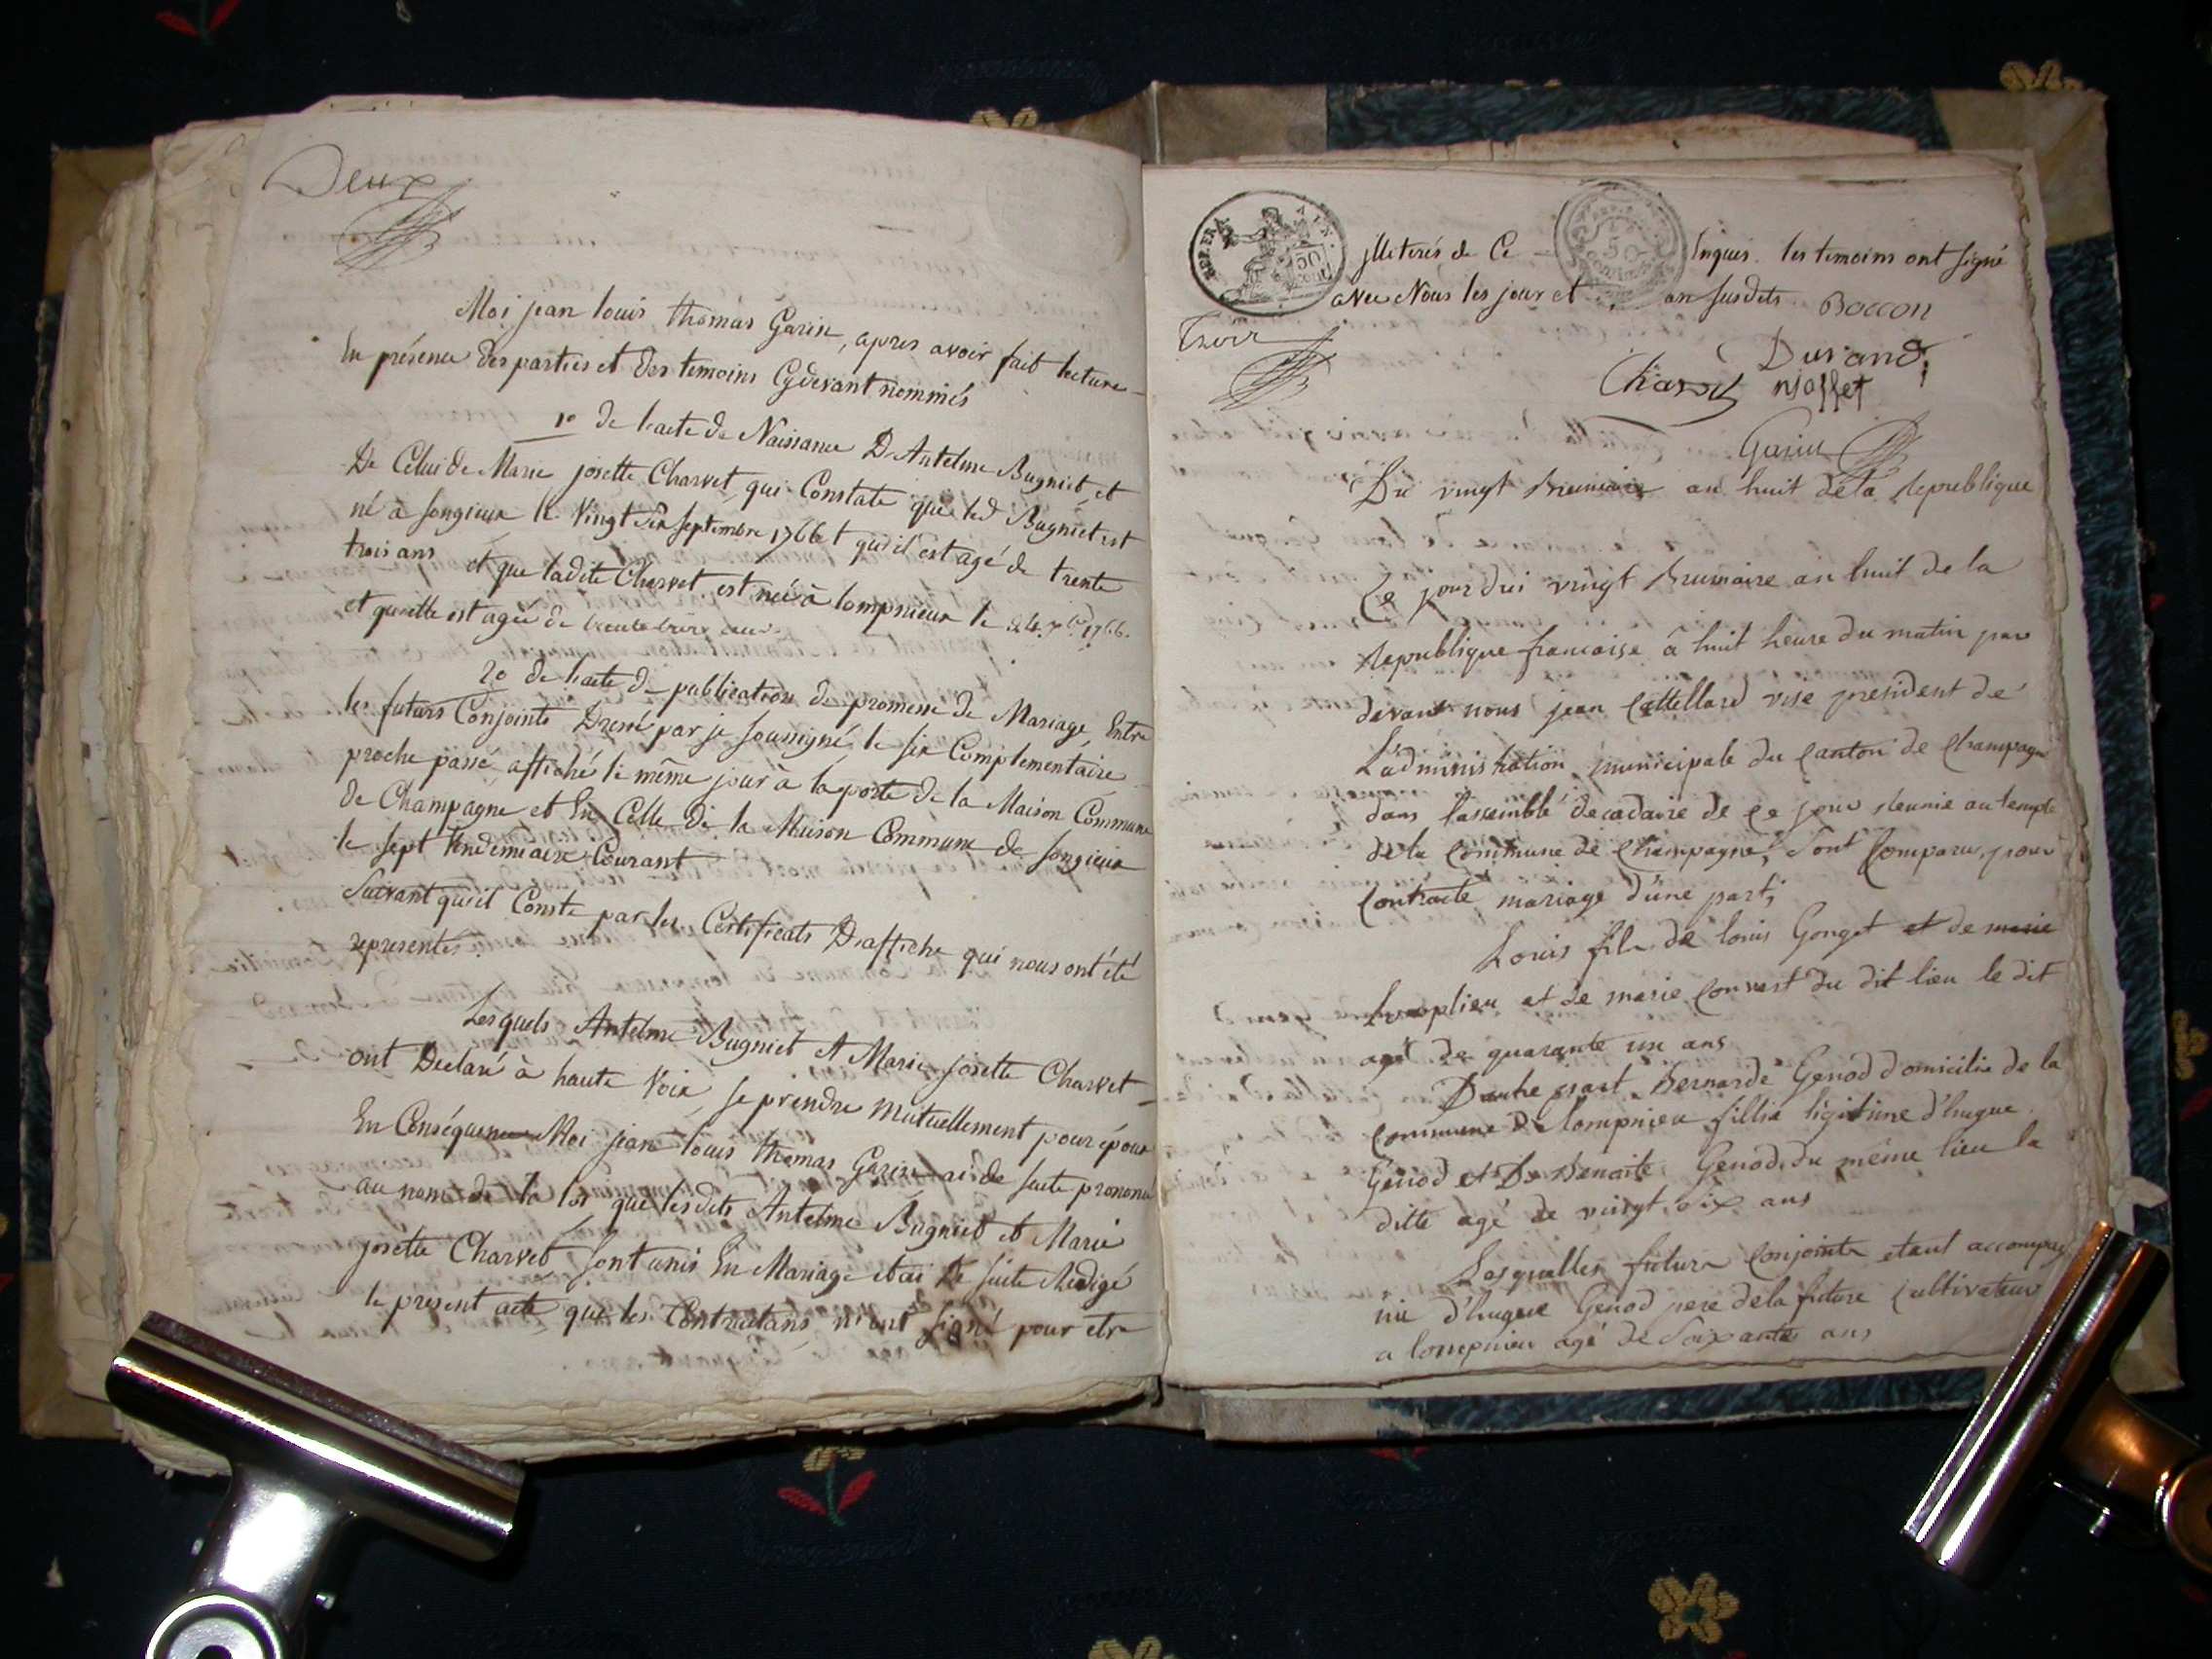 Deux
Moi jean louis thomas Garin, apres avoir fait lecture
En présence des parties et des temoins Cydevant nommés
1o de lacte de Naissance D'Antelme Bugniet et
De Celui de Marie josette Charvet, qui Constate que led Bugniet est
né à Songieux le Vingt Six septembre 1766 et qu'il est agé de trente
trois ans et que ladite Charvet est née à lompnieux le 24 7bre 1766.
et quelle est agée de trente trois ans.
2o de lacte de publication de promesse de Mariage Entre
les futurs Conjoints Dressé par je soussigné, le six Complementaire
proche passé affiché le même jour à la porte de la Maison Commune
de Champagne et En Celle de la Maison Commune de Songieux
le sept Vendemiaire Courant
Suivant qu'il Conste par les Certificats D'affiche qui nous ont été
representés.
Lesquels Antelme Bugniet et Marie josette Charvet
ont Declaré à haute Voix se prendre mutuellement pour époux
En Conséquence Moi jean louis thomas Garin ai de suite prononcé
au nom de la loi que lesdits Antelme Bugniet et Marie
josette Charvet sont unis En Mariage et ai De suite Redigé
le present acte que les Contractans n'ont signé pour etre
REP. FRA. AIN.
50 cent
50
jlleterés de Ce enquis. les temoins ont signé
avec Nous les jour et an susdits. Boccon
Trois
Durand
Charvet
Garin
Du vingt Brumaire an huit de la republique
Ce jourdui vingt Brumaire an huit de la
republique francaise à huit heure du matin par
devant nous jean Cattellard vise president de
L'administration municipale du Canton de Champagne
dans lassemblé decadaire de ce jour reunie au temple
de la Commune de Champagne, sont Comparu, pour
Contracté mariage d'une part;
Louis fils de louis Gonget et de marie
et de marie Convert du dit lieu le dit
agé de quarante un ans
Dautre part Bernarde Genod domicilie de la
Commune de lompnieu fillie ligitime d'hugue
Genod et De Benoite Genod du même lieu la
ditte agé de vingt six ans
Lesquelles future Conjointe etant accompag
nie d'hugue Genod pere de la future Cultivateur
a lompnieu agé de soixante ans